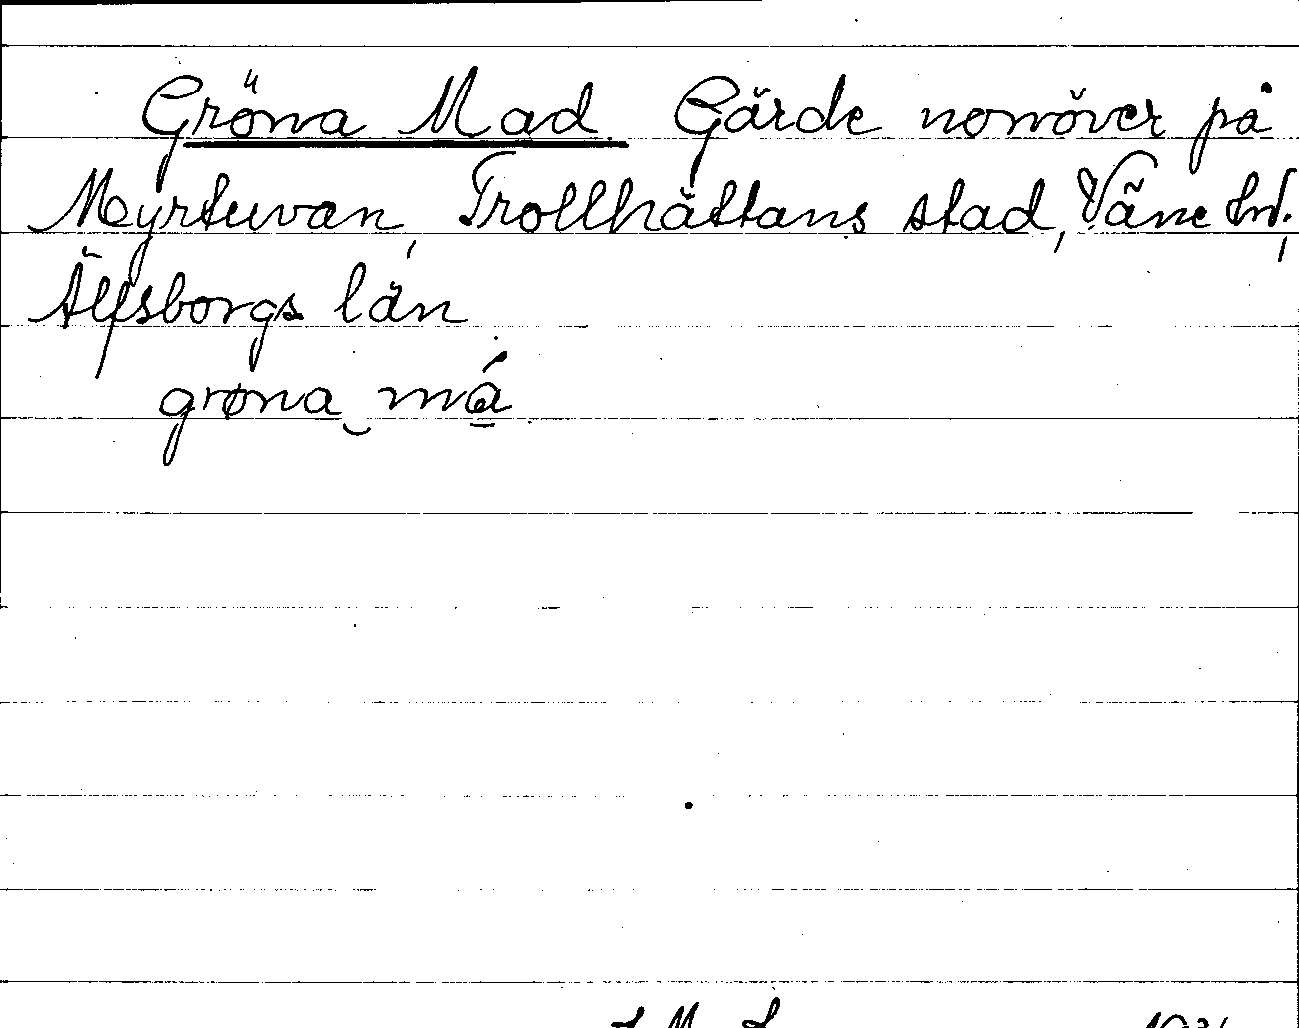 Gröna Mad. Gärde norröver på
Myrtuvan, Trollhättans stad, Väne hd,
Älfsborgs län
grøna må